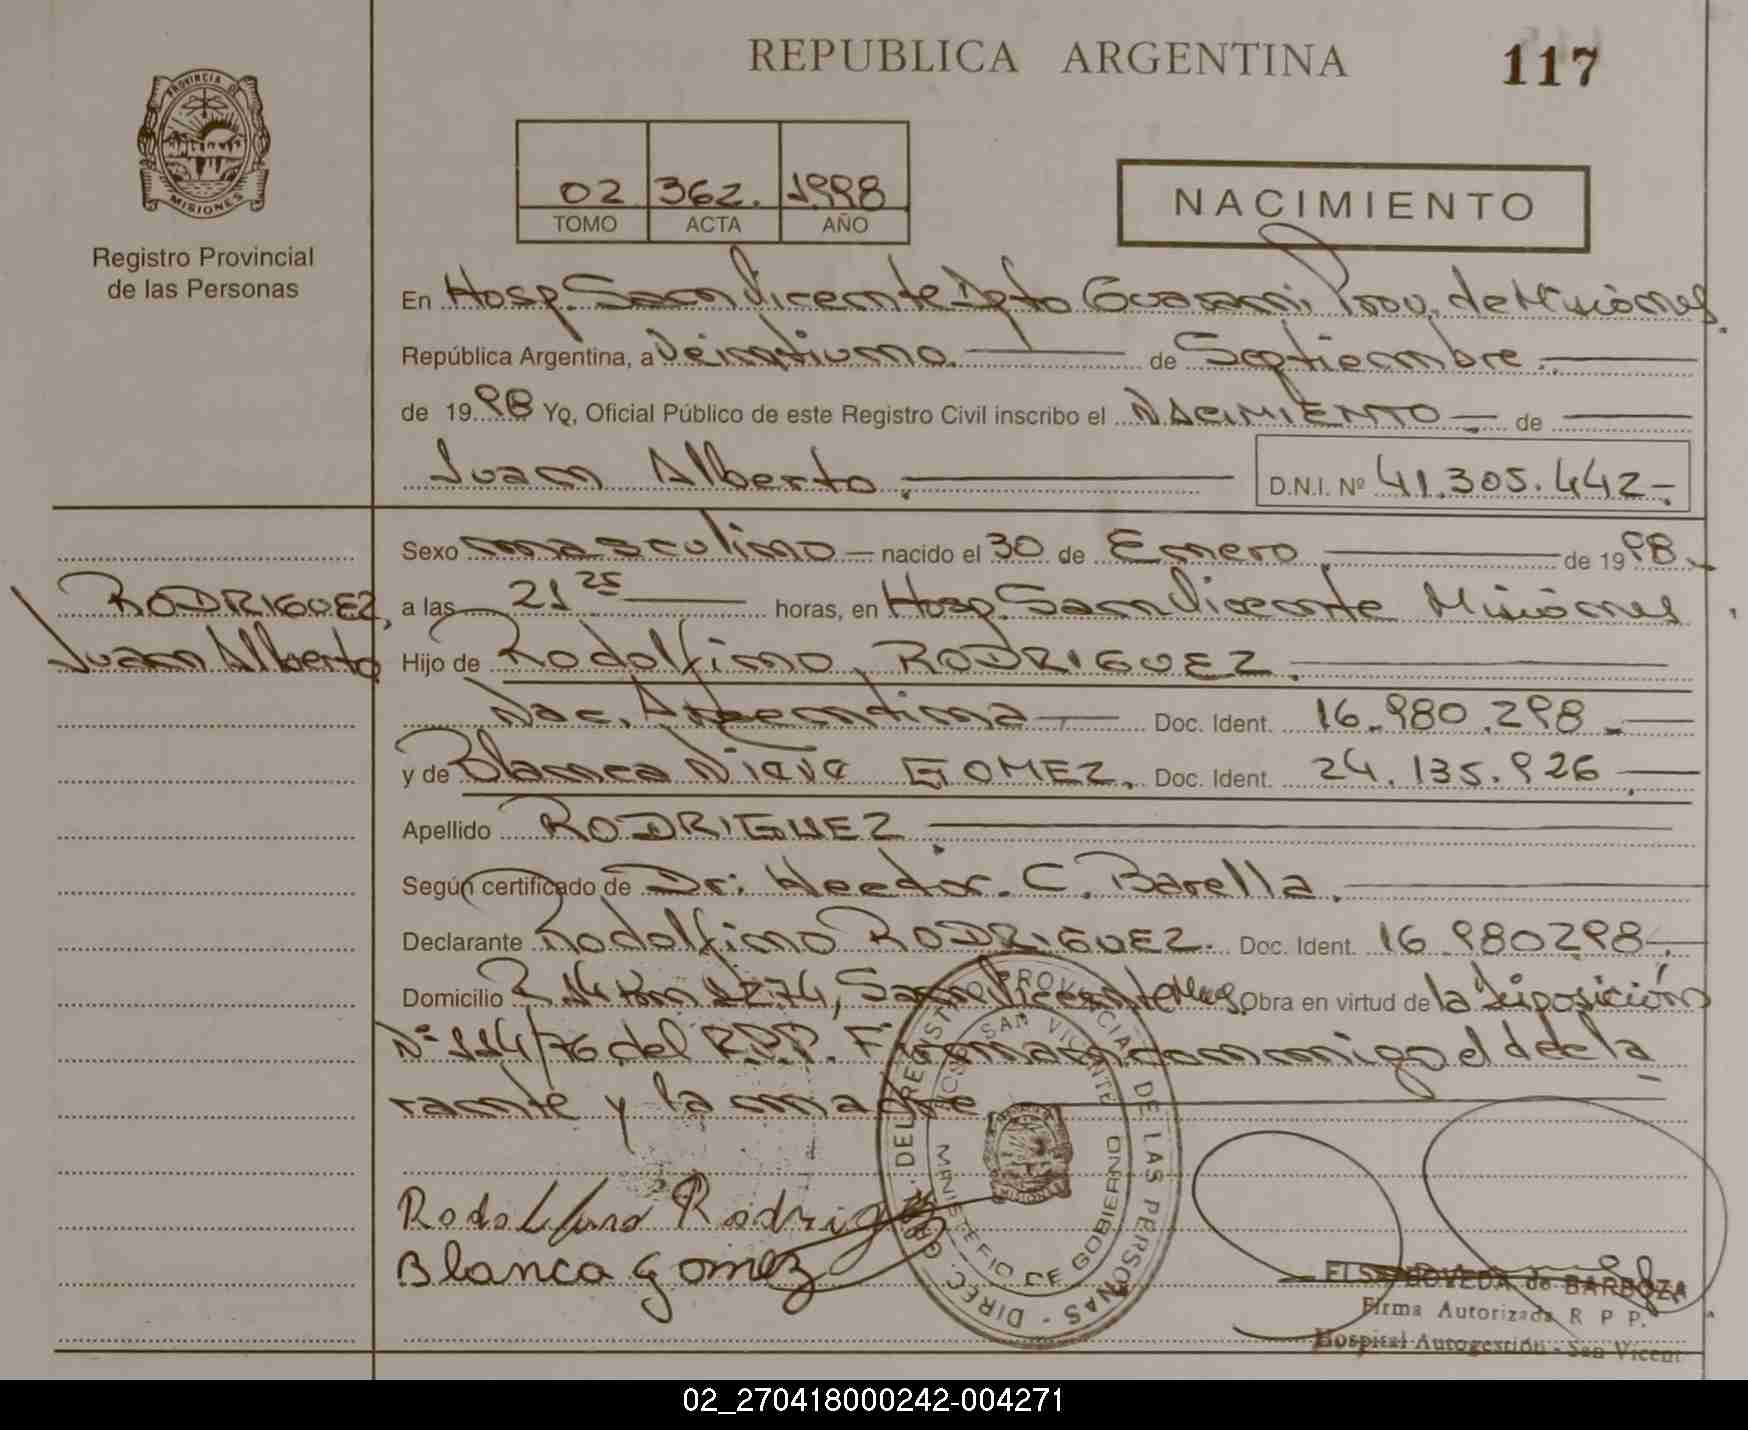 REPUBLICA ARGENTINA
117
PROVINCIA DE
MISIONES
Registro Provincial
de las Personas
02 362. 1998
TOMO ACTA AÑO
NACIMIENTO
En Hosp. San Vicente Dpto Guarani, Prov. de Misiones
República Argentina, a Veintiuno. de Septiembre
de 1998 Yo, Oficial Público de este Registro Civil inscribo el NACIMIENTO de
Juan Alberto.
D.N.I. Nº 41.305.442-
Sexo masculino nacido el 30 de Enero de 1998
RODRIGUEZ,
Juan Alberto
a las 21 25 horas, en Hosp. San Vicente Misiones
Hijo de Rodolfino RODRIGUEZ.
Nac. Argentina Doc. Ident. 16.980.298
y de Blanca Nieve GOMEZ. Doc. Ident. 24.135.926
Apellido RODRIGUEZ
Según certificado de Dr: Hector. C. Barella.
Declarante Rodolfino RODRIGUEZ. Doc. Ident. 16.980298
Domicilio R.14 Km 1274, San Vicente Obra en virtud de la disposición
Nº 114/76 del R.P.P. Firman conmigo el decla
rante y la madre
Rodolfino Rodriguez
Blanca Gomez
DIREC. GRAL. DEL REGISTRO PROVINCIAL DE LAS PERSONAS -
HOSP. SAN VICENTE
MINISTERIO DE GOBIERNO
MISIONES
ELSA SEPULVEDA de BARBOZA
Firma Autorizada R P P.
Hospital Autogestión - San Vicent
02_270418000242-004271